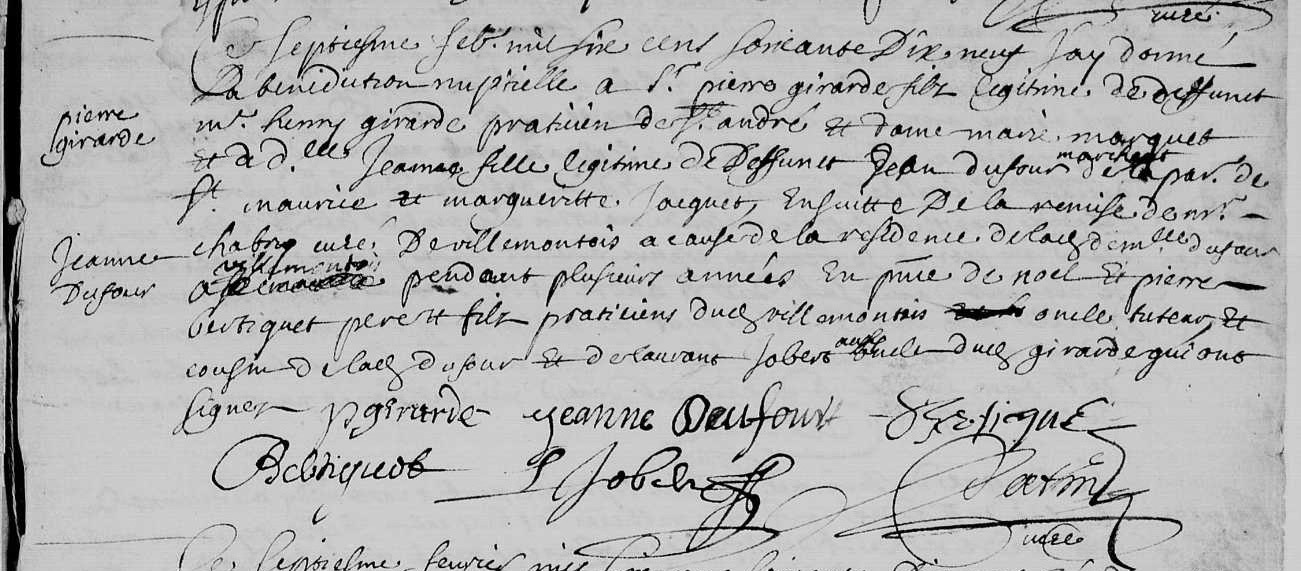 curé
Ce septiesme feb. mil six cens soixante Dix neuf J'ay donné
La benediction nuptielle a Sr. pierre girarde filz legitime de deffunct
mr. henry girarde praticien de St. andré et dame marie marquet
et a d.lle Jeanne fille legitime de Deffunct Jean dufour marchant de la par. de
St. maurice et margueritte Jacquet, Ensuitte De la remise de mr.
chabry curé De villemontois a cause de la residence de lad demlle dufour
a villemontois pendant plusieurs années En pnce de noel Et pierre
bertiquet pere et filz praticiens dud villemontois oncle tuteur Et
cousin de lad dufour et de laurant Jobert aussy oncle dud girarde qui ont
signez pgirarde jeanne Dufour
Jobert
curé
pierre
girarde
Jeanne
Dufour
Ce septiesme feuvrier mil